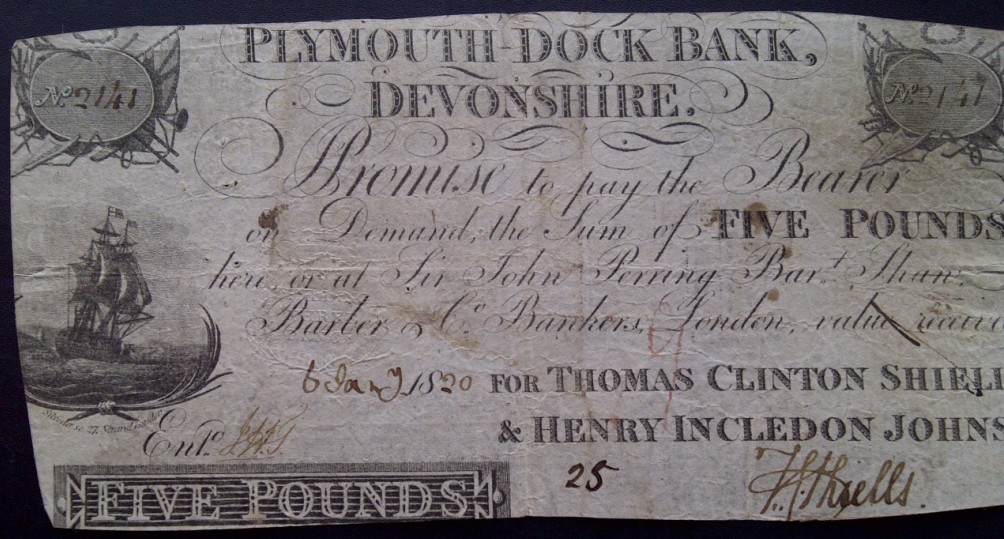 PLYMOUTH-DOCK BANK,
No. 2141
No. 2141
DEVONSHIRE.
I Promise to pay the Bearer
on Demand, the Sum of FIVE POUNDS
here, or at Sir John Perring Bart. Shaw,
Barber & Co. Bankers, London, value receive
6 Jany 1820 FOR THOMAS CLINTON SHIEL
Entd.
& HENRY INCLEDON JOHNS
25
FIVE POUNDS